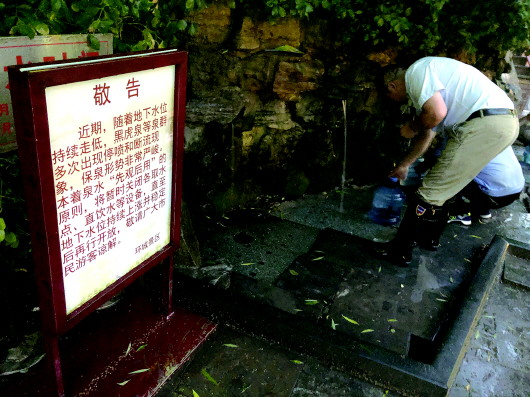 敬告
近期，随着地下水位
持续走低，黑虎泉等泉群
多次出现停喷和断流现
象，保泉形势非常严峻。
本着泉水“先观后用”的
原则，将暂时关闭各取水
点、直饮水等设备，直至
地下水位持续上涨并稳定
后再行开放，敬请广大市
民游客谅解。
环城景区